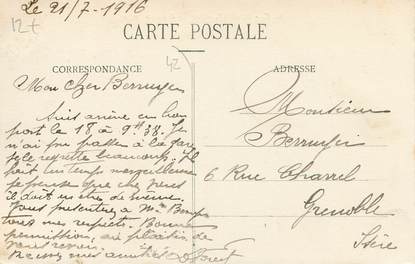 Le 21/7-1916
12+
CARTE POSTALE
42
CORRESPONDANCE
ADRESSE
Mon cher Berruyer
Suis arrivé en bon
port le 18 à 9h38. Je
n'ai pu passer à la gare
je le regrette beaucoup. Il
fait un temps merveilleux
je pense que chez vous
il doit en être de même.
Vous présenterez à Mme
tous mes respects. Bonne
permission, au plaisir de
vous revoir.
Recevez mes amitiés
Monsieur
Berruyer
6 Rue Charrel
Grenoble
Isère